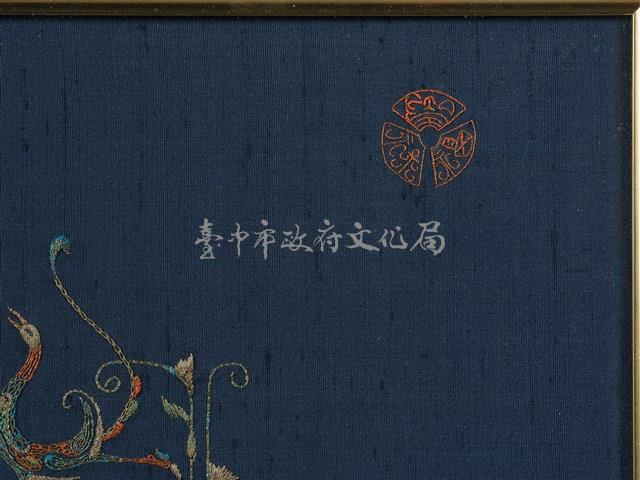 臺中市政府文化局